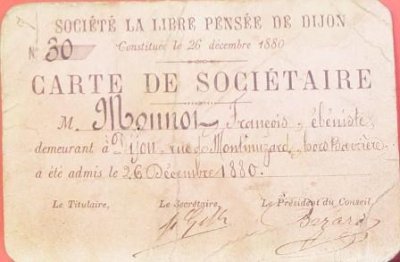 SOCIÉTÉ LA LIBRE PENSÉE DE DIJON
N° 30 Constituée le 26 décembre 1880
CARTE DE SOCIÉTAIRE
M. Monnot François, ébéniste
demeurant à Dijon, rue de Montmuzard,
a été admis le 26 Décembre 1880.
Le Titulaire, Le Secrétaire, Le Président du Conseil,